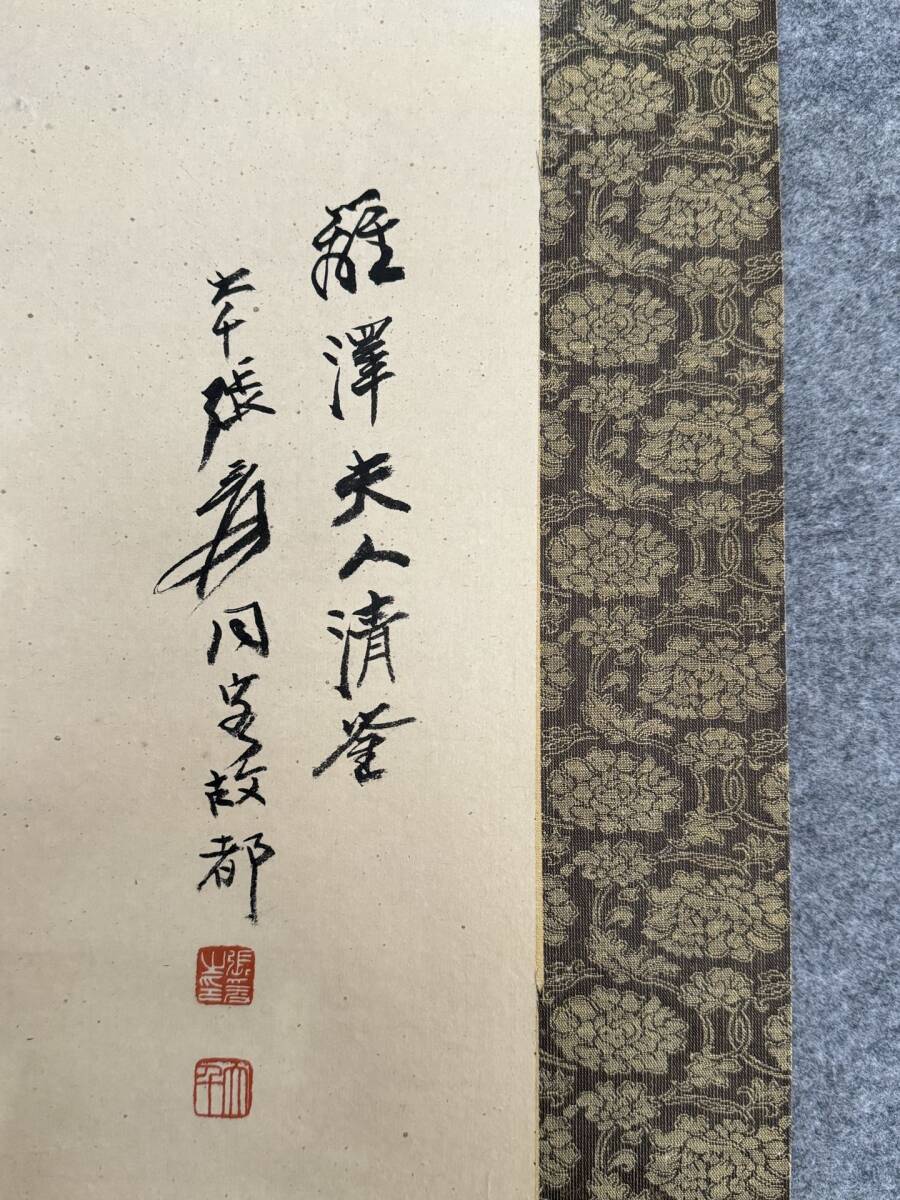 澤夫人清鉴
大千張爰同客故都
張爰
大千